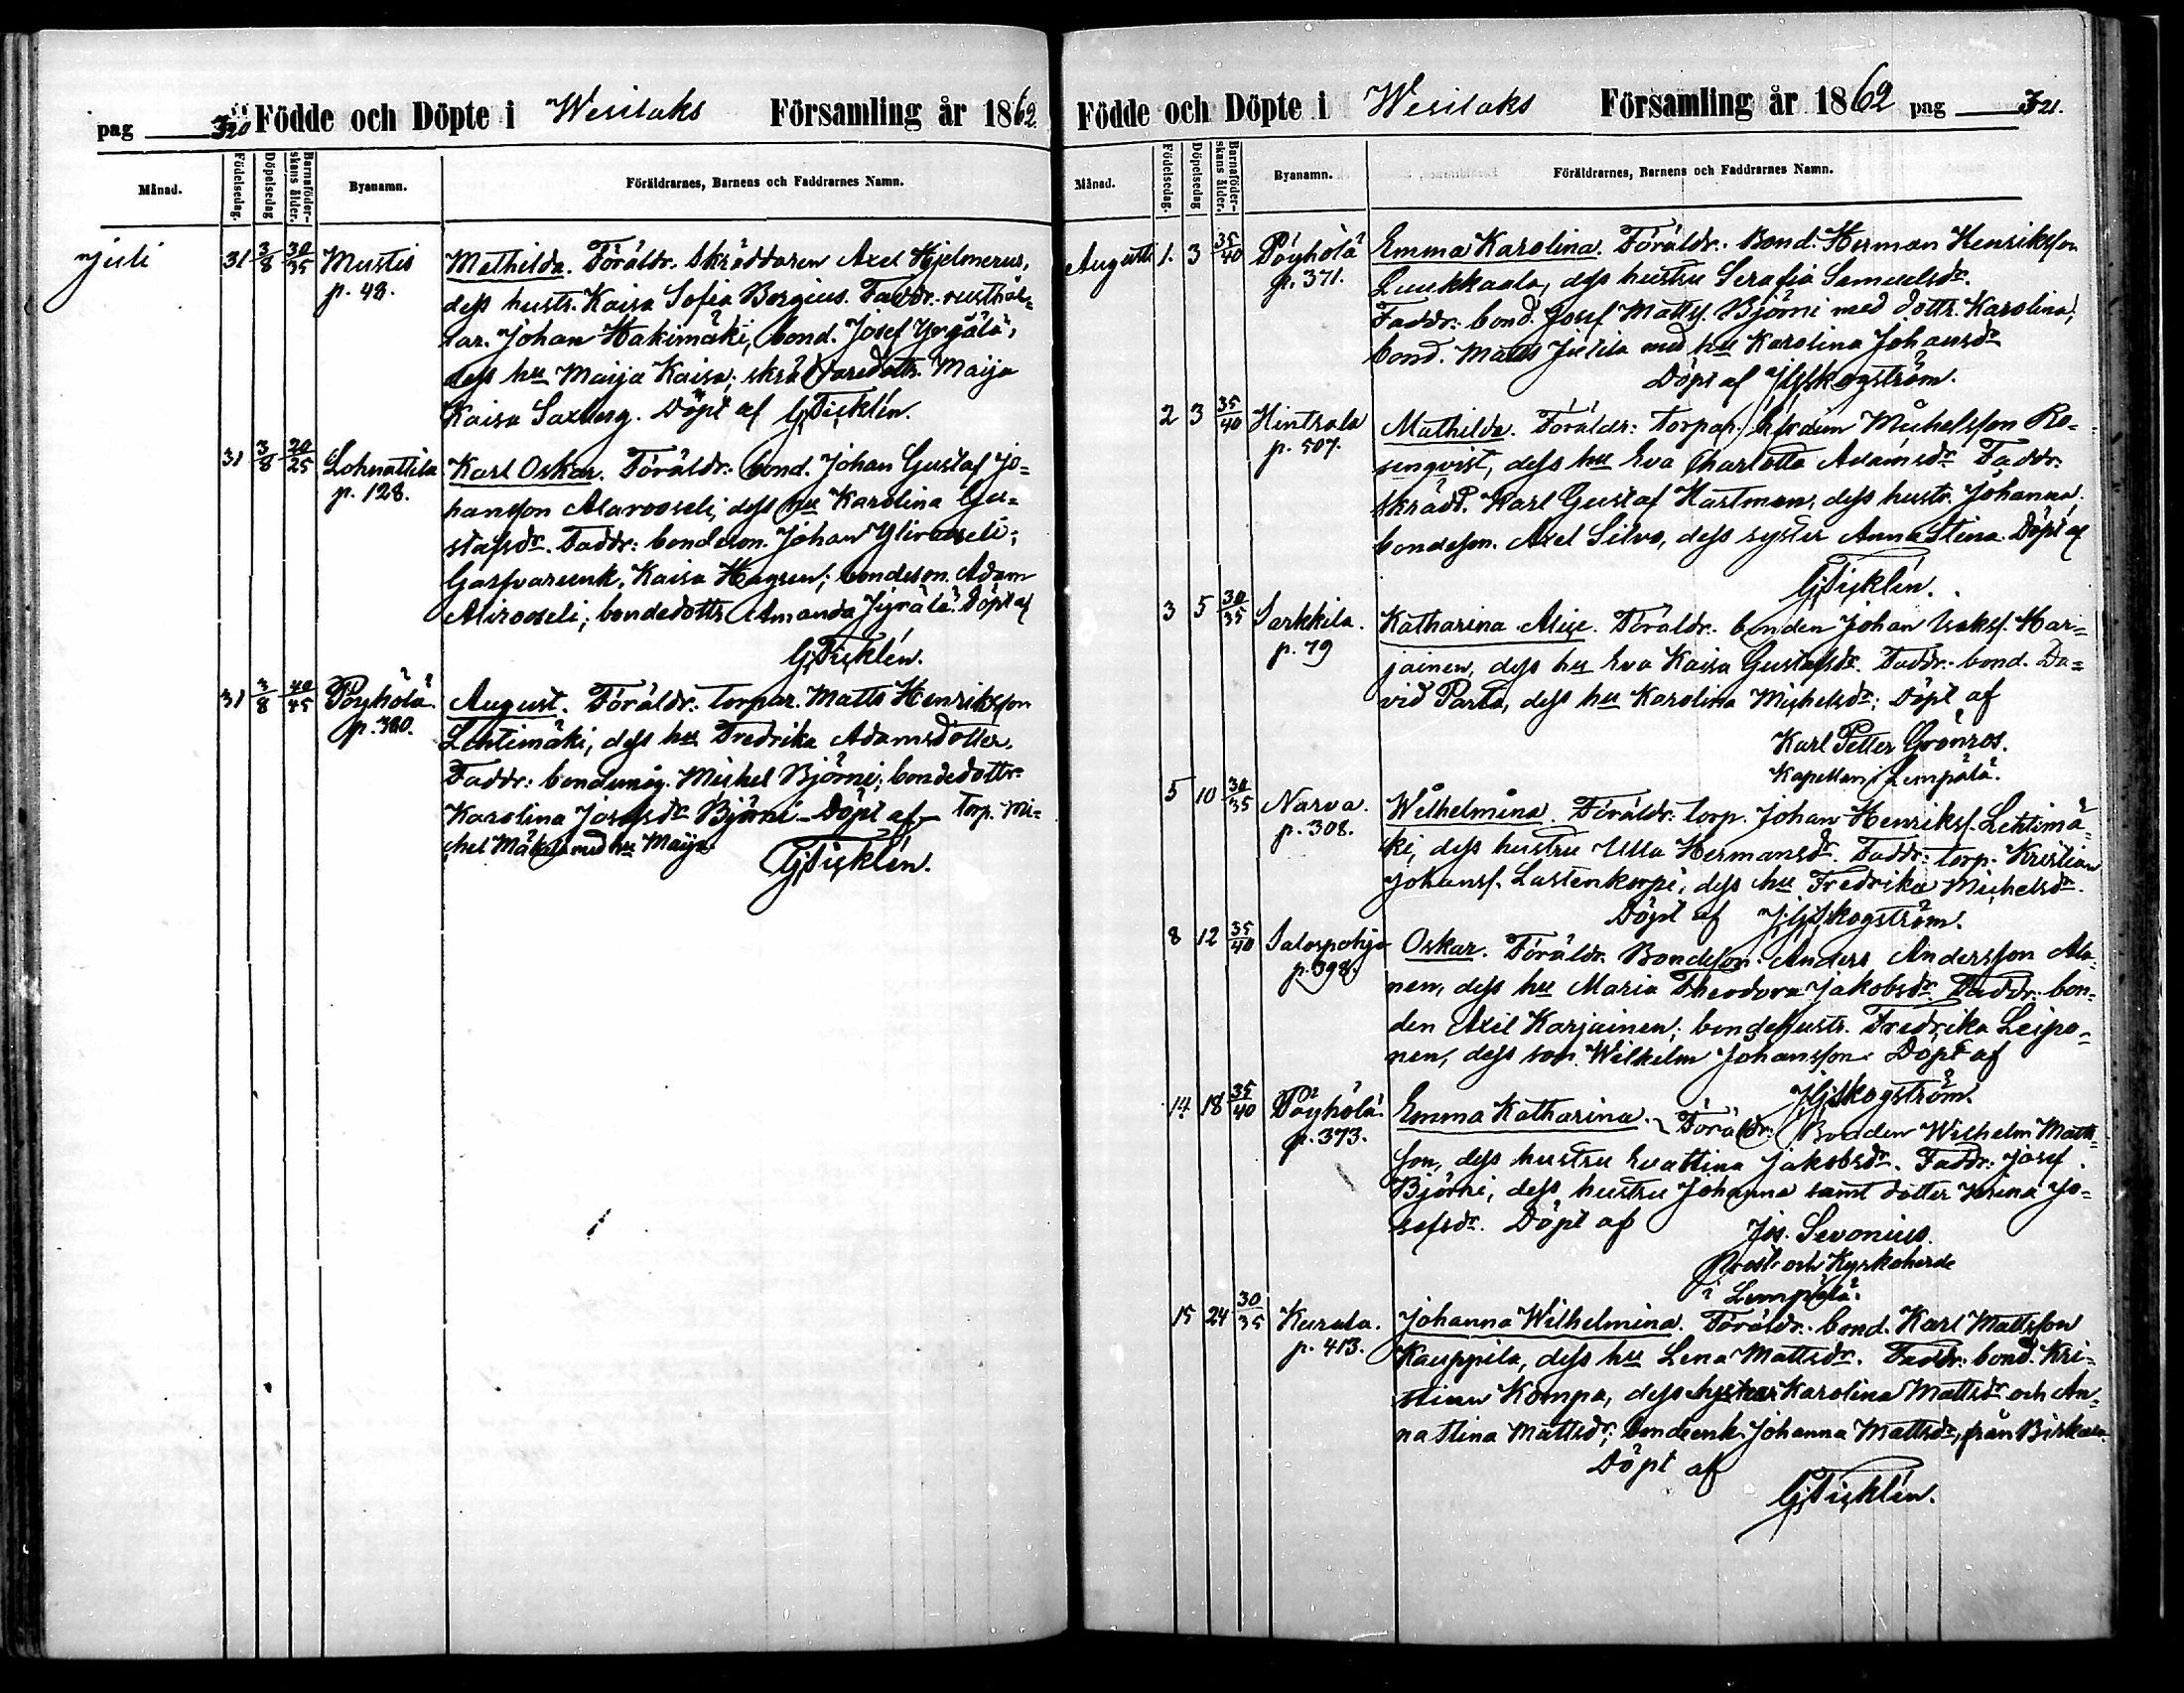 pag 320 Födde och Döpte i Wesilaks Församling år 1862
Månad. Födelsedag. Döpelsedag Barnaföderskans ålder. Byanamn. Föräldrarnes, Barnens och Faddrarnes Namn.
Juli 31 3/8 30/35 Mustis Mathilda. Föräldr. Skräddaren Axel Hjelmerus,
p. 48. dess hustr. Kaisa Sofia Borgius. Faddr. rusthål-
lar. Johan Hakimäki, bond. Josef Yrjälä,
dess hu Maija Kaisa; skräddaredottr. Maija
Kaisa Saxberg. Döpt af G. Ticklén.
31 3/8 20/25 Lohnattila Karl Oskar. Föräldr: bond. Johan Gustaf Jo-
p. 128. hansson Alarooseli, dess hu Karolina Gu-
stafsdr. Faddr: bondeson. Johan Ylirooseli;
Kaisa Hagren; bondeson. Adam
Alirooseli; bondedottr Amanda Jyrälä. Döpt af
G. Ticklén.
31 3/8 40/45 Pöyhölä August. Föräldr: torpar. Matts Henriksson
p. 380. Lehtimäki, dess hu Fredrika Adamsdotter.
Faddr: bondemåg. Michel Björni; bondedottr.
Karolina Josefsdr Björni - Döpt af - torp. Mi-
chel Mäkelä med hu Maija.
G. Ticklén.
Födde och Döpte i Wesilaks Församling år 1862 pag 321.
Månad. Födelsedag. Döpelsedag Barnaföderskans ålder. Byanamn. Föräldrarnes, Barnens och Faddrarnes Namn.
Augusti 1. 3 35/40 Pöyhölä Emma Karolina. Föräldr. Bond. Herman Henriksson
p. 371. Luukkaala, dess hustru Serafia Samuelsdr.
Faddr: bond. Josef Matts. Björni med dottr. Karolina,
bond. Matts Jutila med hu Karolina Johansdr
Döpt af J. G. Skogström.
2 3 35/40 Hintsala Mathilda. Föräldr: torpar. Efraim Michelsson Ro-
p. 507. senqvist, dess hu Eva Charlotta Adamsdr Faddr.
skrädd. Karl Gustaf Hartman, dess hustr. Johanna,
bondeson. Axel Silvo, dess syster Anna Stina. Döpt af
G. Ticklén.
3 5 30/35 Sarkkila. Katharina Alise. Föräldr. bonden Johan Isaks. Har-
p. 79 jainen, dess hu Eva Kaisa Gustafsdr. Faddr: bond. Da-
vid Parta, dess hu Karolina Michelsdr; Döpt af
Karl Petter Grönros.
Kapellan i Lempälä.
5 10 30/35 Narva. Wilhelmina. Föräldr: torp. Johan Henrikss. Lehtimä-
p. 308. ki, dess hustru Ulla Hermansdr. Faddr: torp. Kristian
Johanss. Lastenkorpi, dess hu Fredrika Michelsdr.
Döpt af J. G. Skogström.
8 12 35/40 Salospohja Oskar. Föräldr. Bondeson. Anders Andersson Ala-
p. 398. nen, dess hu Maria Theodora Jakobsdr. Faddr: bon-
den Axel Karjainen; bondehustr. Fredrika Leipo-
nen, dess son Wilhelm Johansson. Döpt af
J. G. Skogström.
14 18 35/40 Pöyhölä. Emma Katharina. Föräldr: Bonden Wilhelm Matts-
p. 373. son, dess hustru Evastina Jakobsdr. Faddr: Josef
Björni, dess hustru Johanna samt dotter Jo-
sefsdr. Döpt af Jos. Sevonius.
Prost och Kyrkoherde
i Lempälä.
15 24 30/35 Kurala. Johanna Wilhelmina. Föräldr. bond. Karl Mattsson
p. 413. Kauppila, dess hu Lena Mattsdr. Faddr: bond. Kri-
stian Kompa, dess hustru Karolina Mattsdr och An-
na Stina Mattsdr; bondeenk. Johanna Mattsdr, från Birkala.
Döpt af
G. Ticklén.